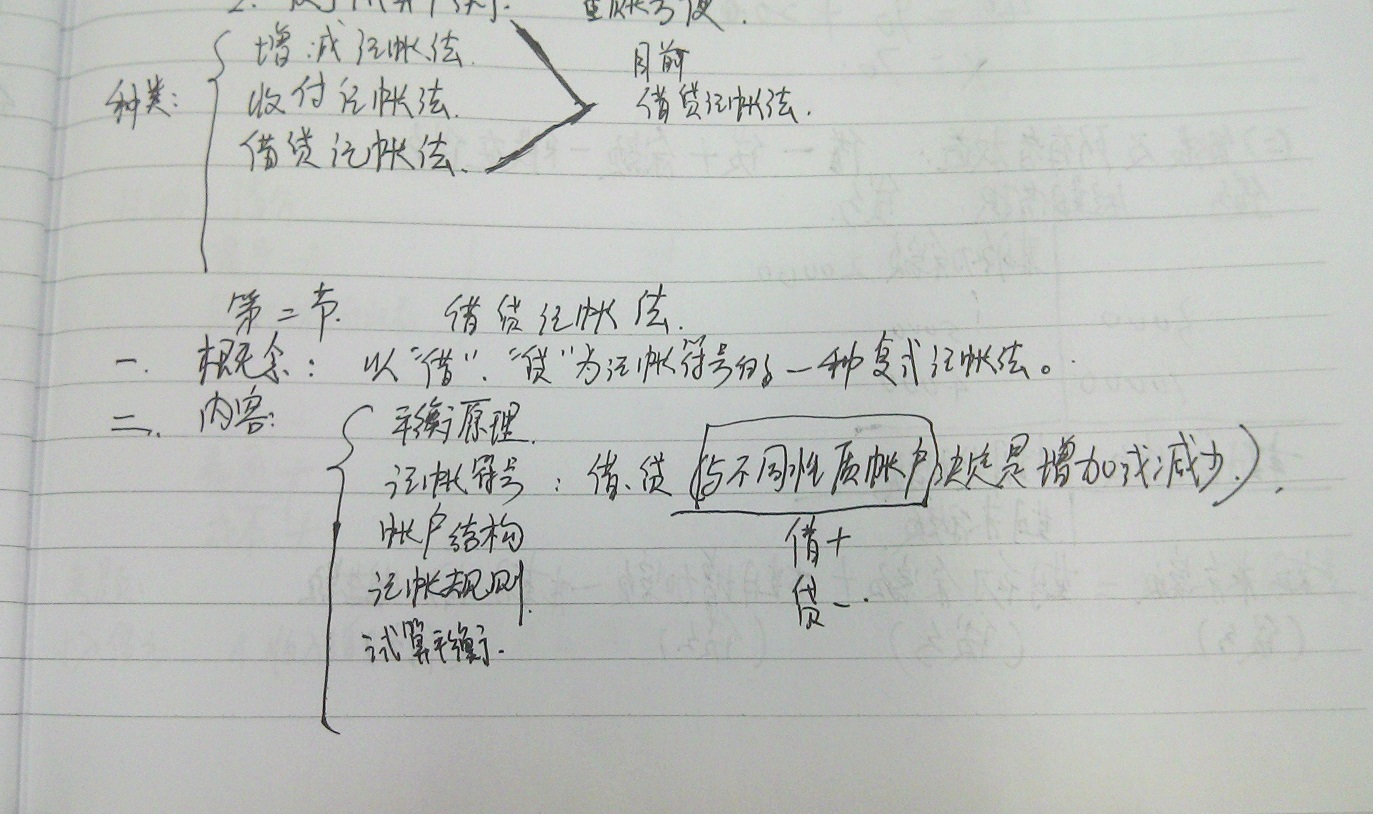 2.
增减记帐法.
目前
种类: 收付记帐法. 借贷记帐法.
借贷记帐法.
第二节. 借贷记帐法.
一. 概念: 以"借"、"贷"为记帐符号的一种复式记帐法。
二. 内容: 平衡原理.
记帐符号: 借、贷 (与不同性质帐户决定是增加或减少).
帐户结构 借+
记帐规则. 贷-.
试算平衡.